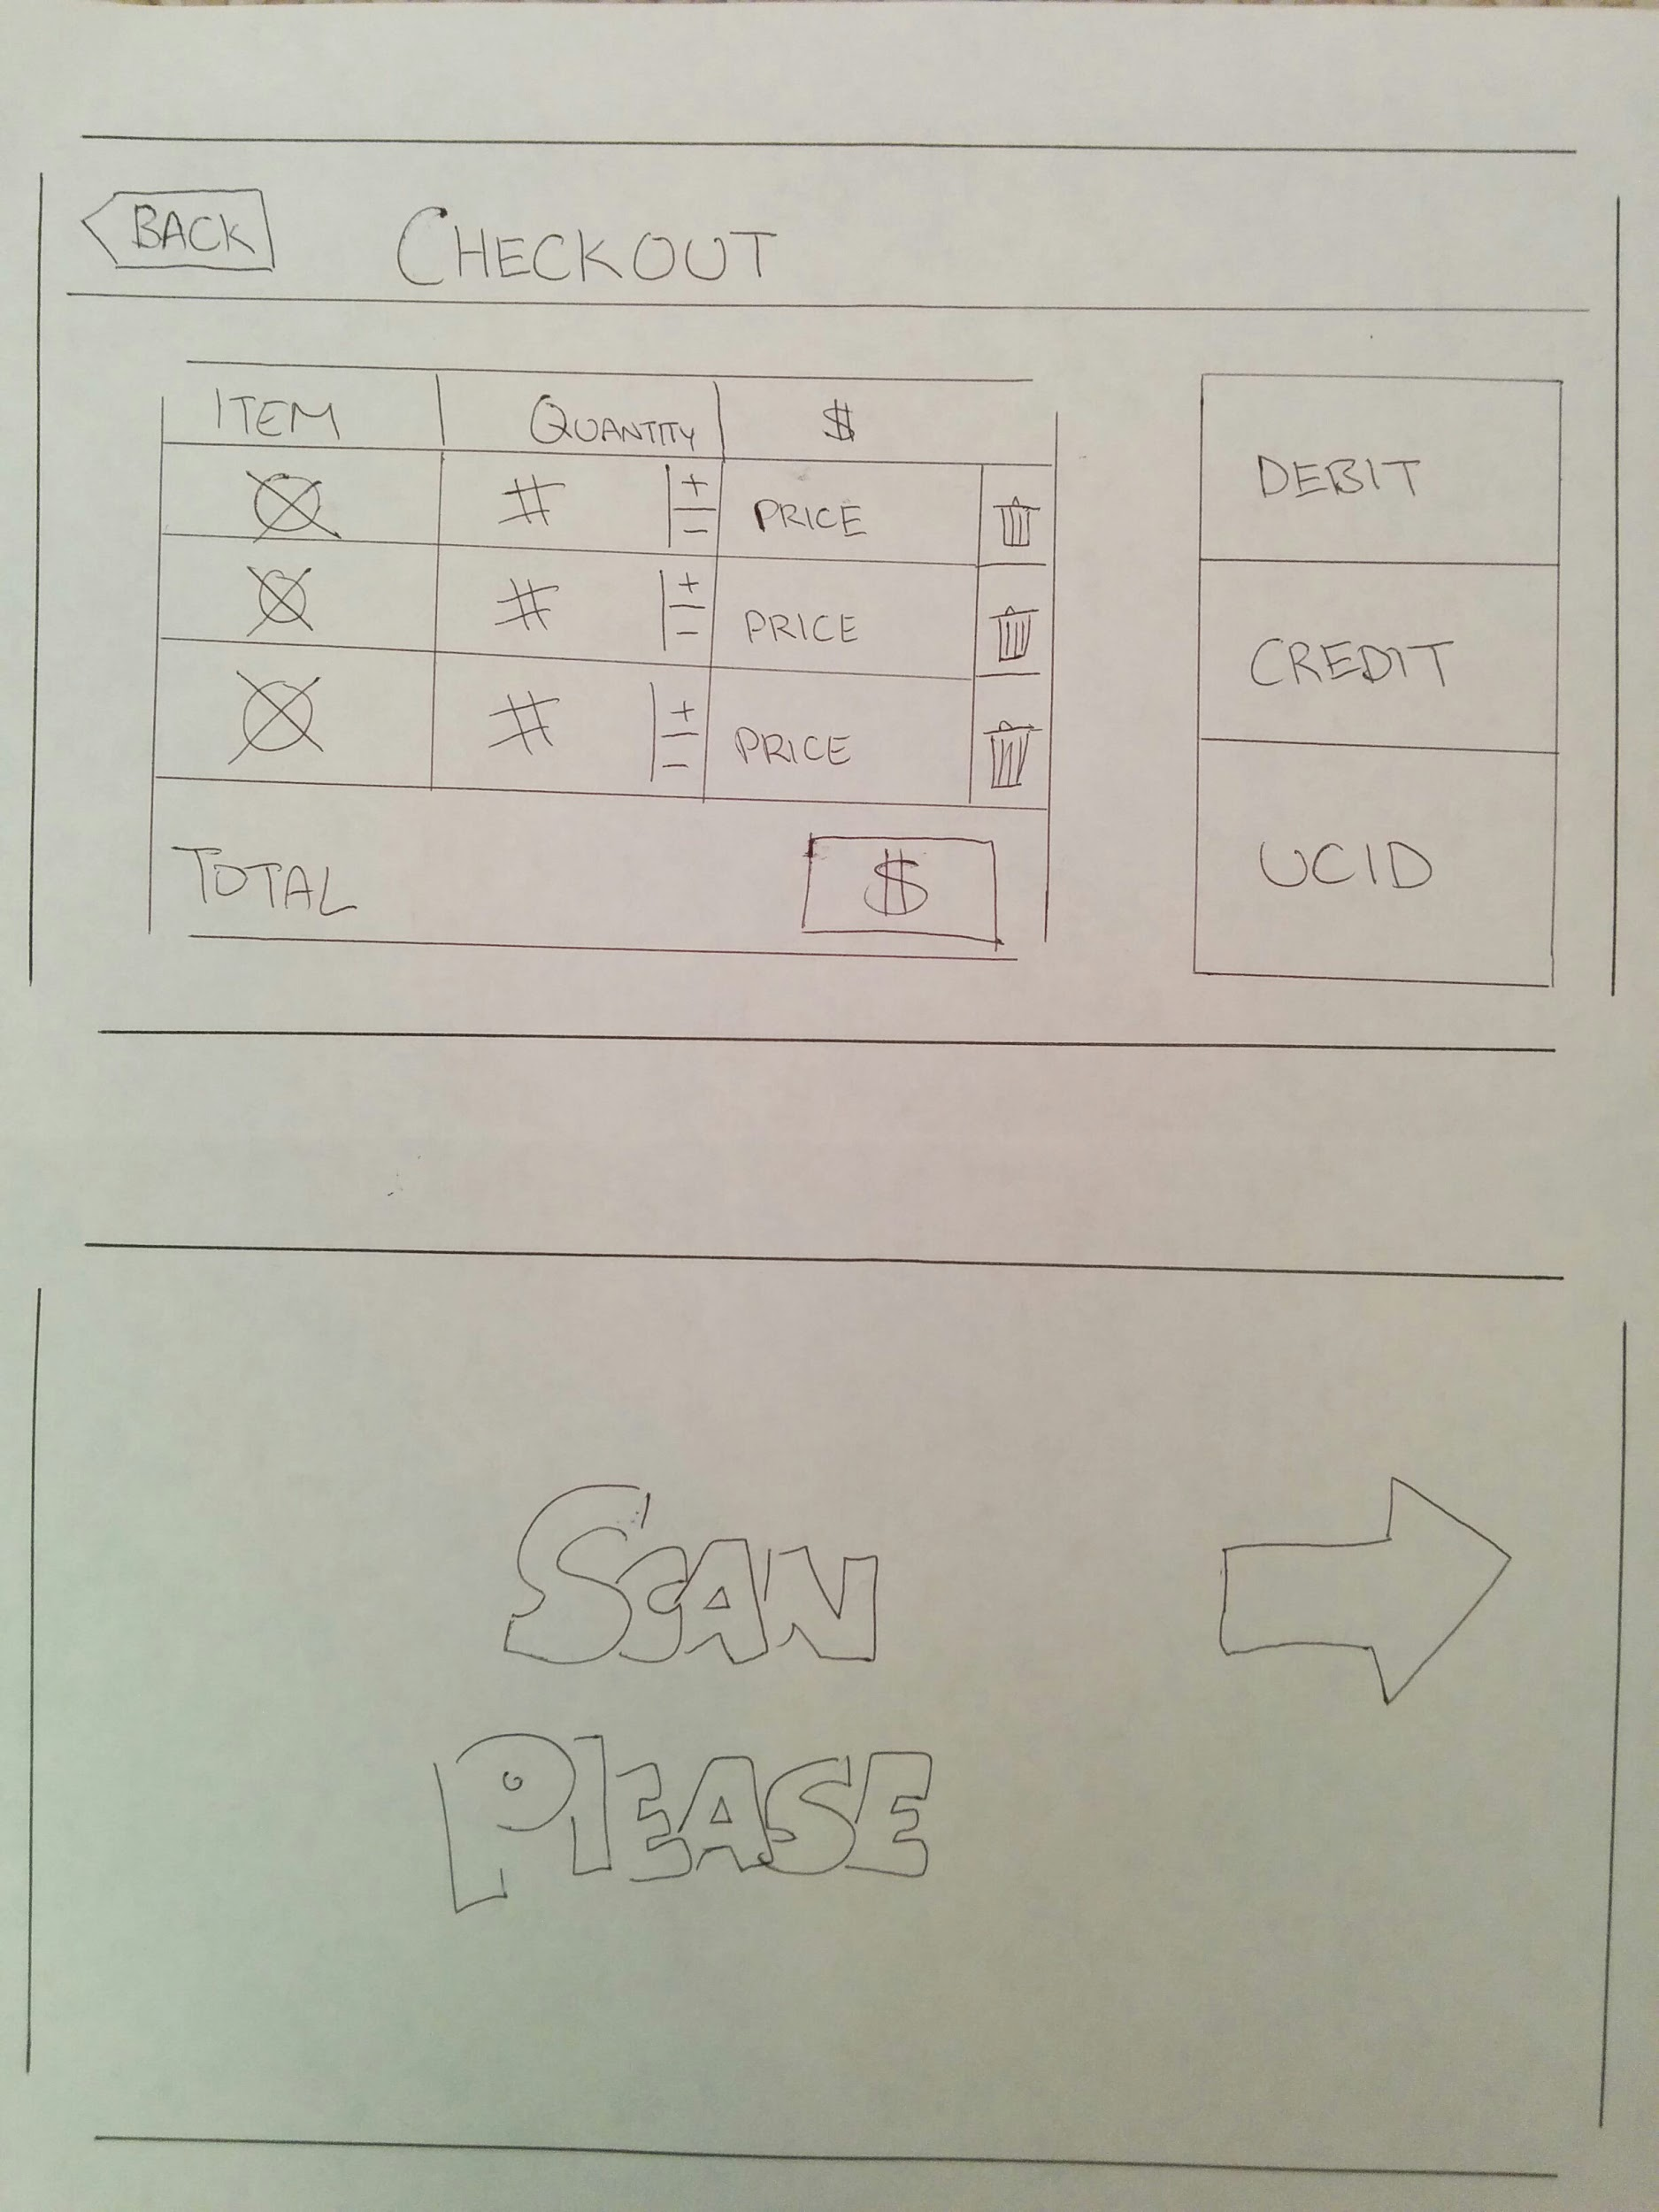 BACK
CHECKOUT
ITEM QUANTITY $
# + - PRICE
# + - PRICE
# + - PRICE
TOTAL $
DEBIT
CREDIT
UCID
SCAN
PLEASE